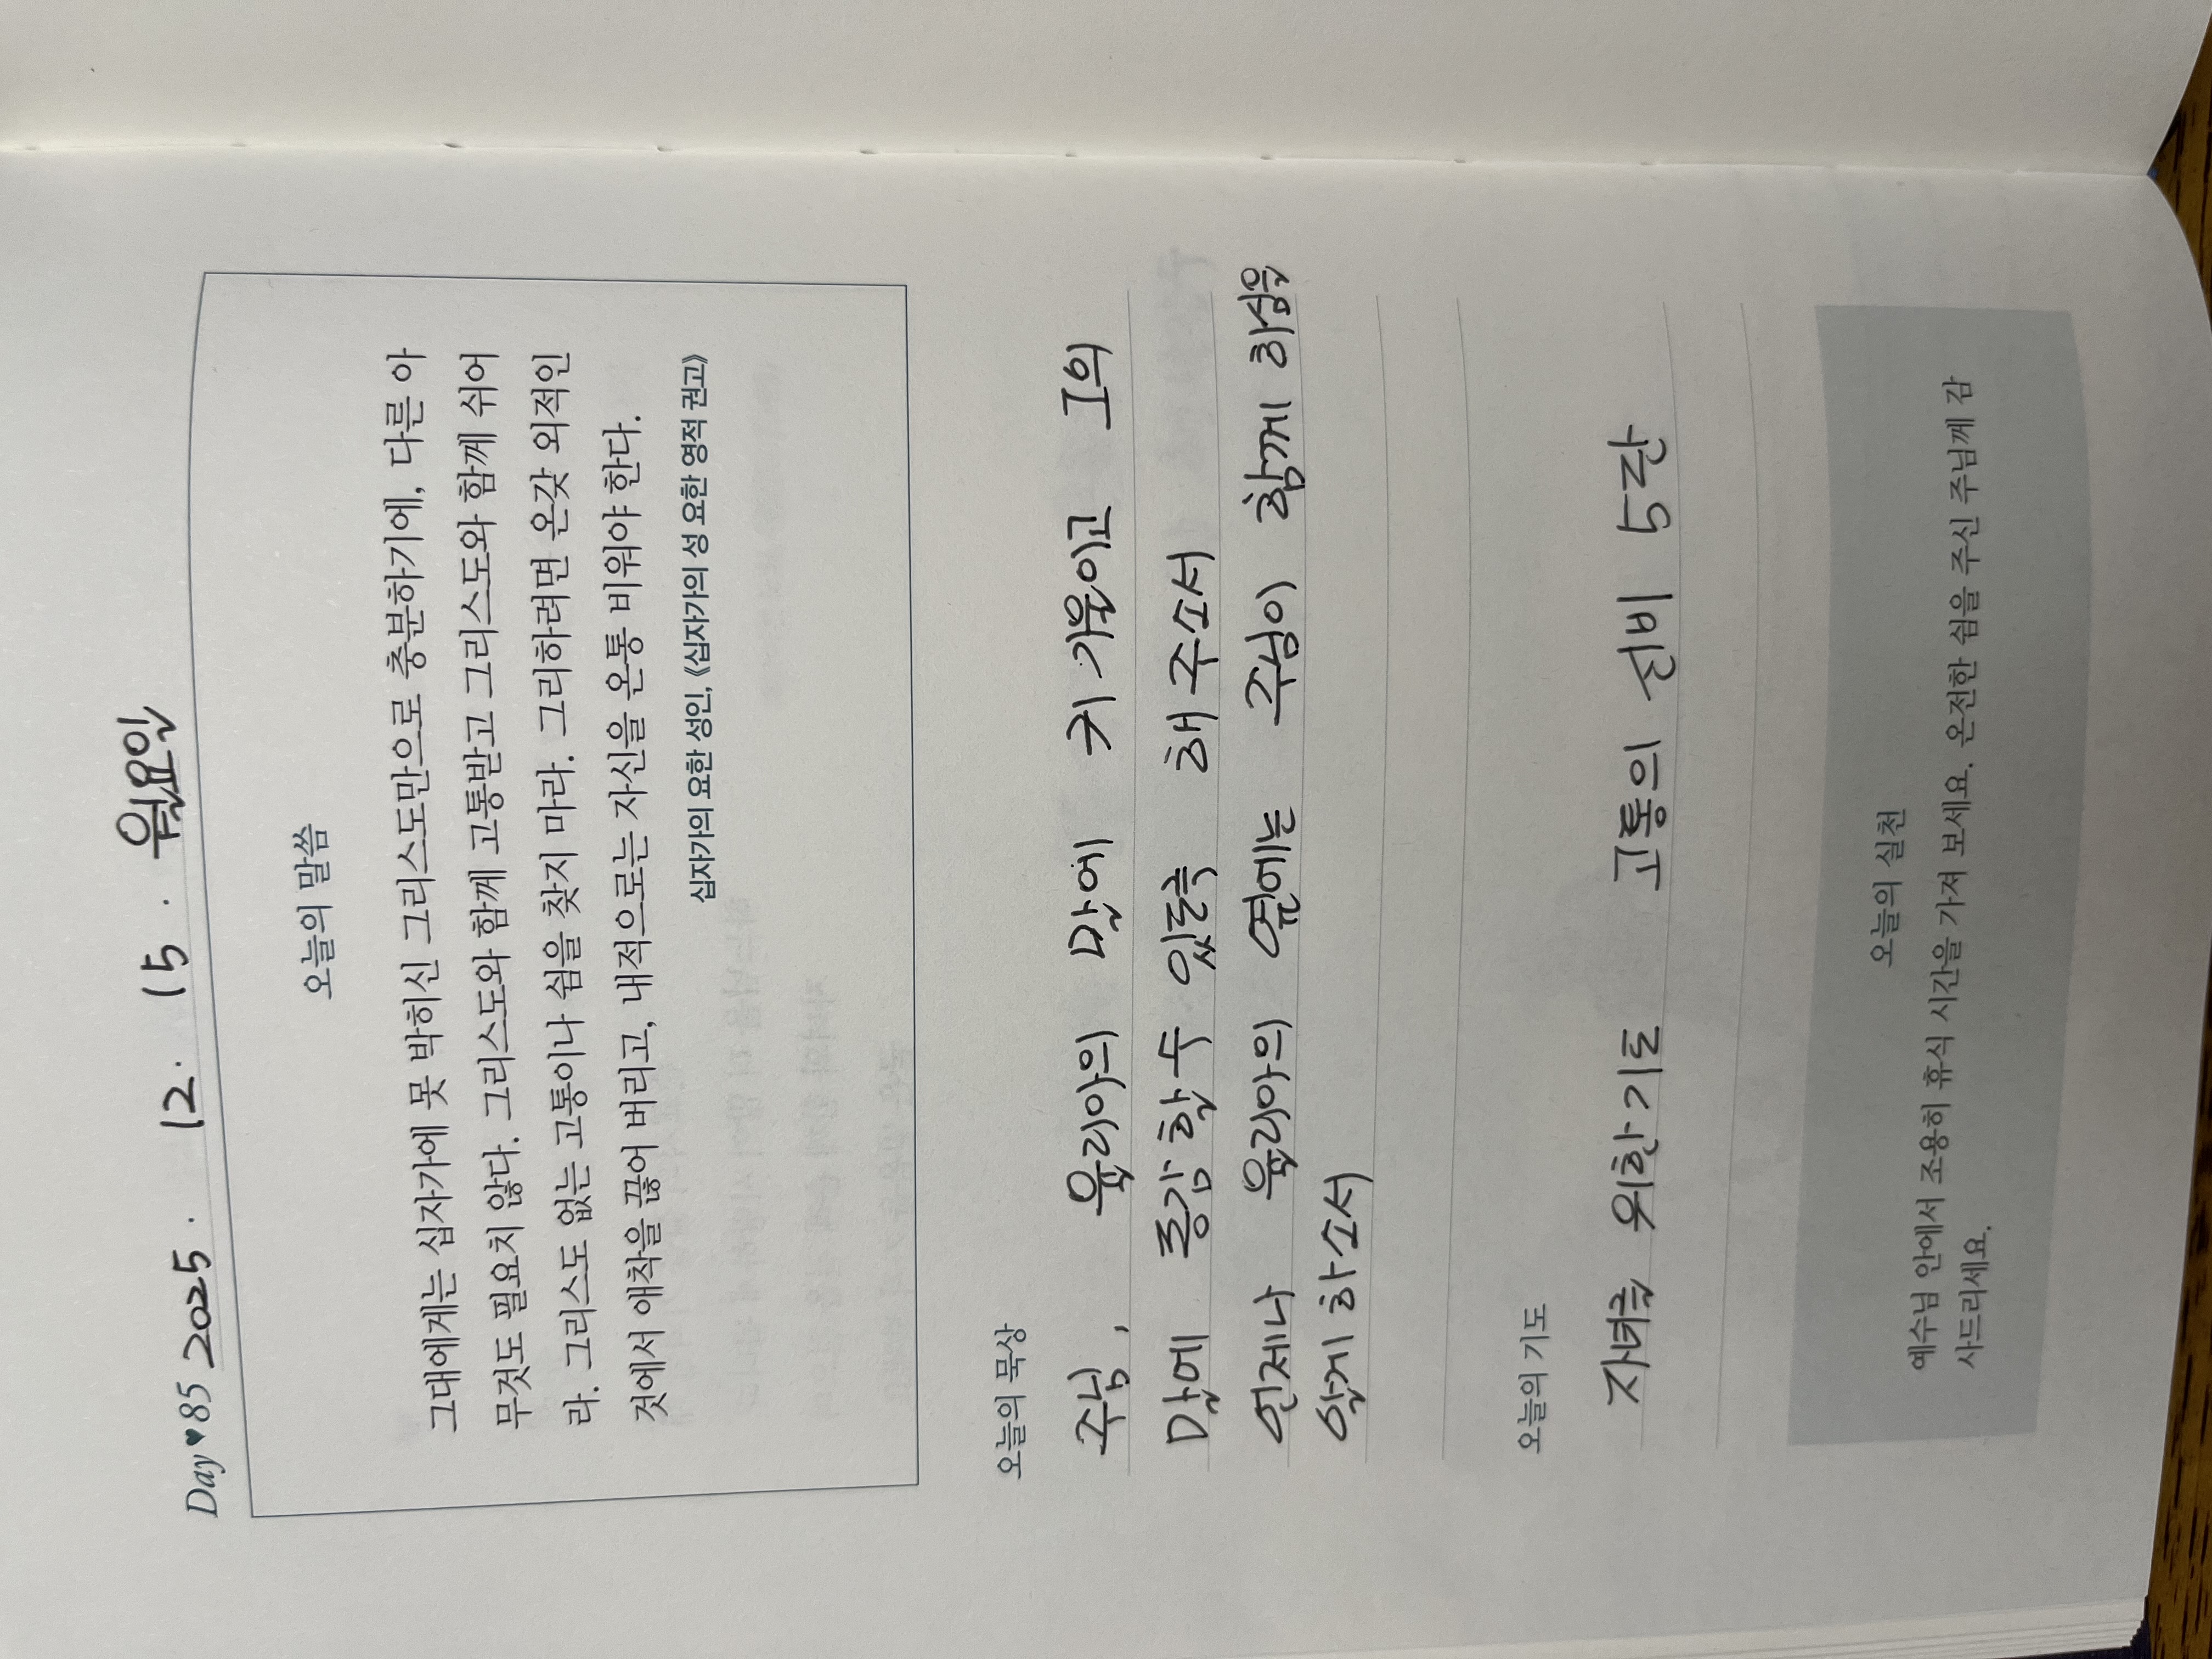 Day♥85 2025. 12. 15. 월요일
오늘의 말씀
그대에게는 십자가에 못 박히신 그리스도만으로 충분하기에, 다른 아
무것도 필요치 않다. 그리스도와 함께 고통받고 그리스도와 함께 쉬어
라. 그리스도 없는 고통이나 쉼을 찾지 마라. 그리하려면 온갖 외적인
것에서 애착을 끊어 버리고, 내적으로는 자신을 온통 비워야 한다.
십자가의 요한 성인, 《십자가의 성 요한 영적 권고》
오늘의 묵상
주님, 율리아의 말에 귀 기울이고 그의
말에 공감 할 수 있도록 해 주소서
언제나 율리아의 옆에는 주님이 함께 하심을
알게 하소서
오늘의 기도
자녀를 위한 기도 고통의 신비 5단
오늘의 실천
예수님 안에서 조용히 휴식 시간을 가져 보세요. 온전한 쉼을 주신 주님께 감
사드리세요.